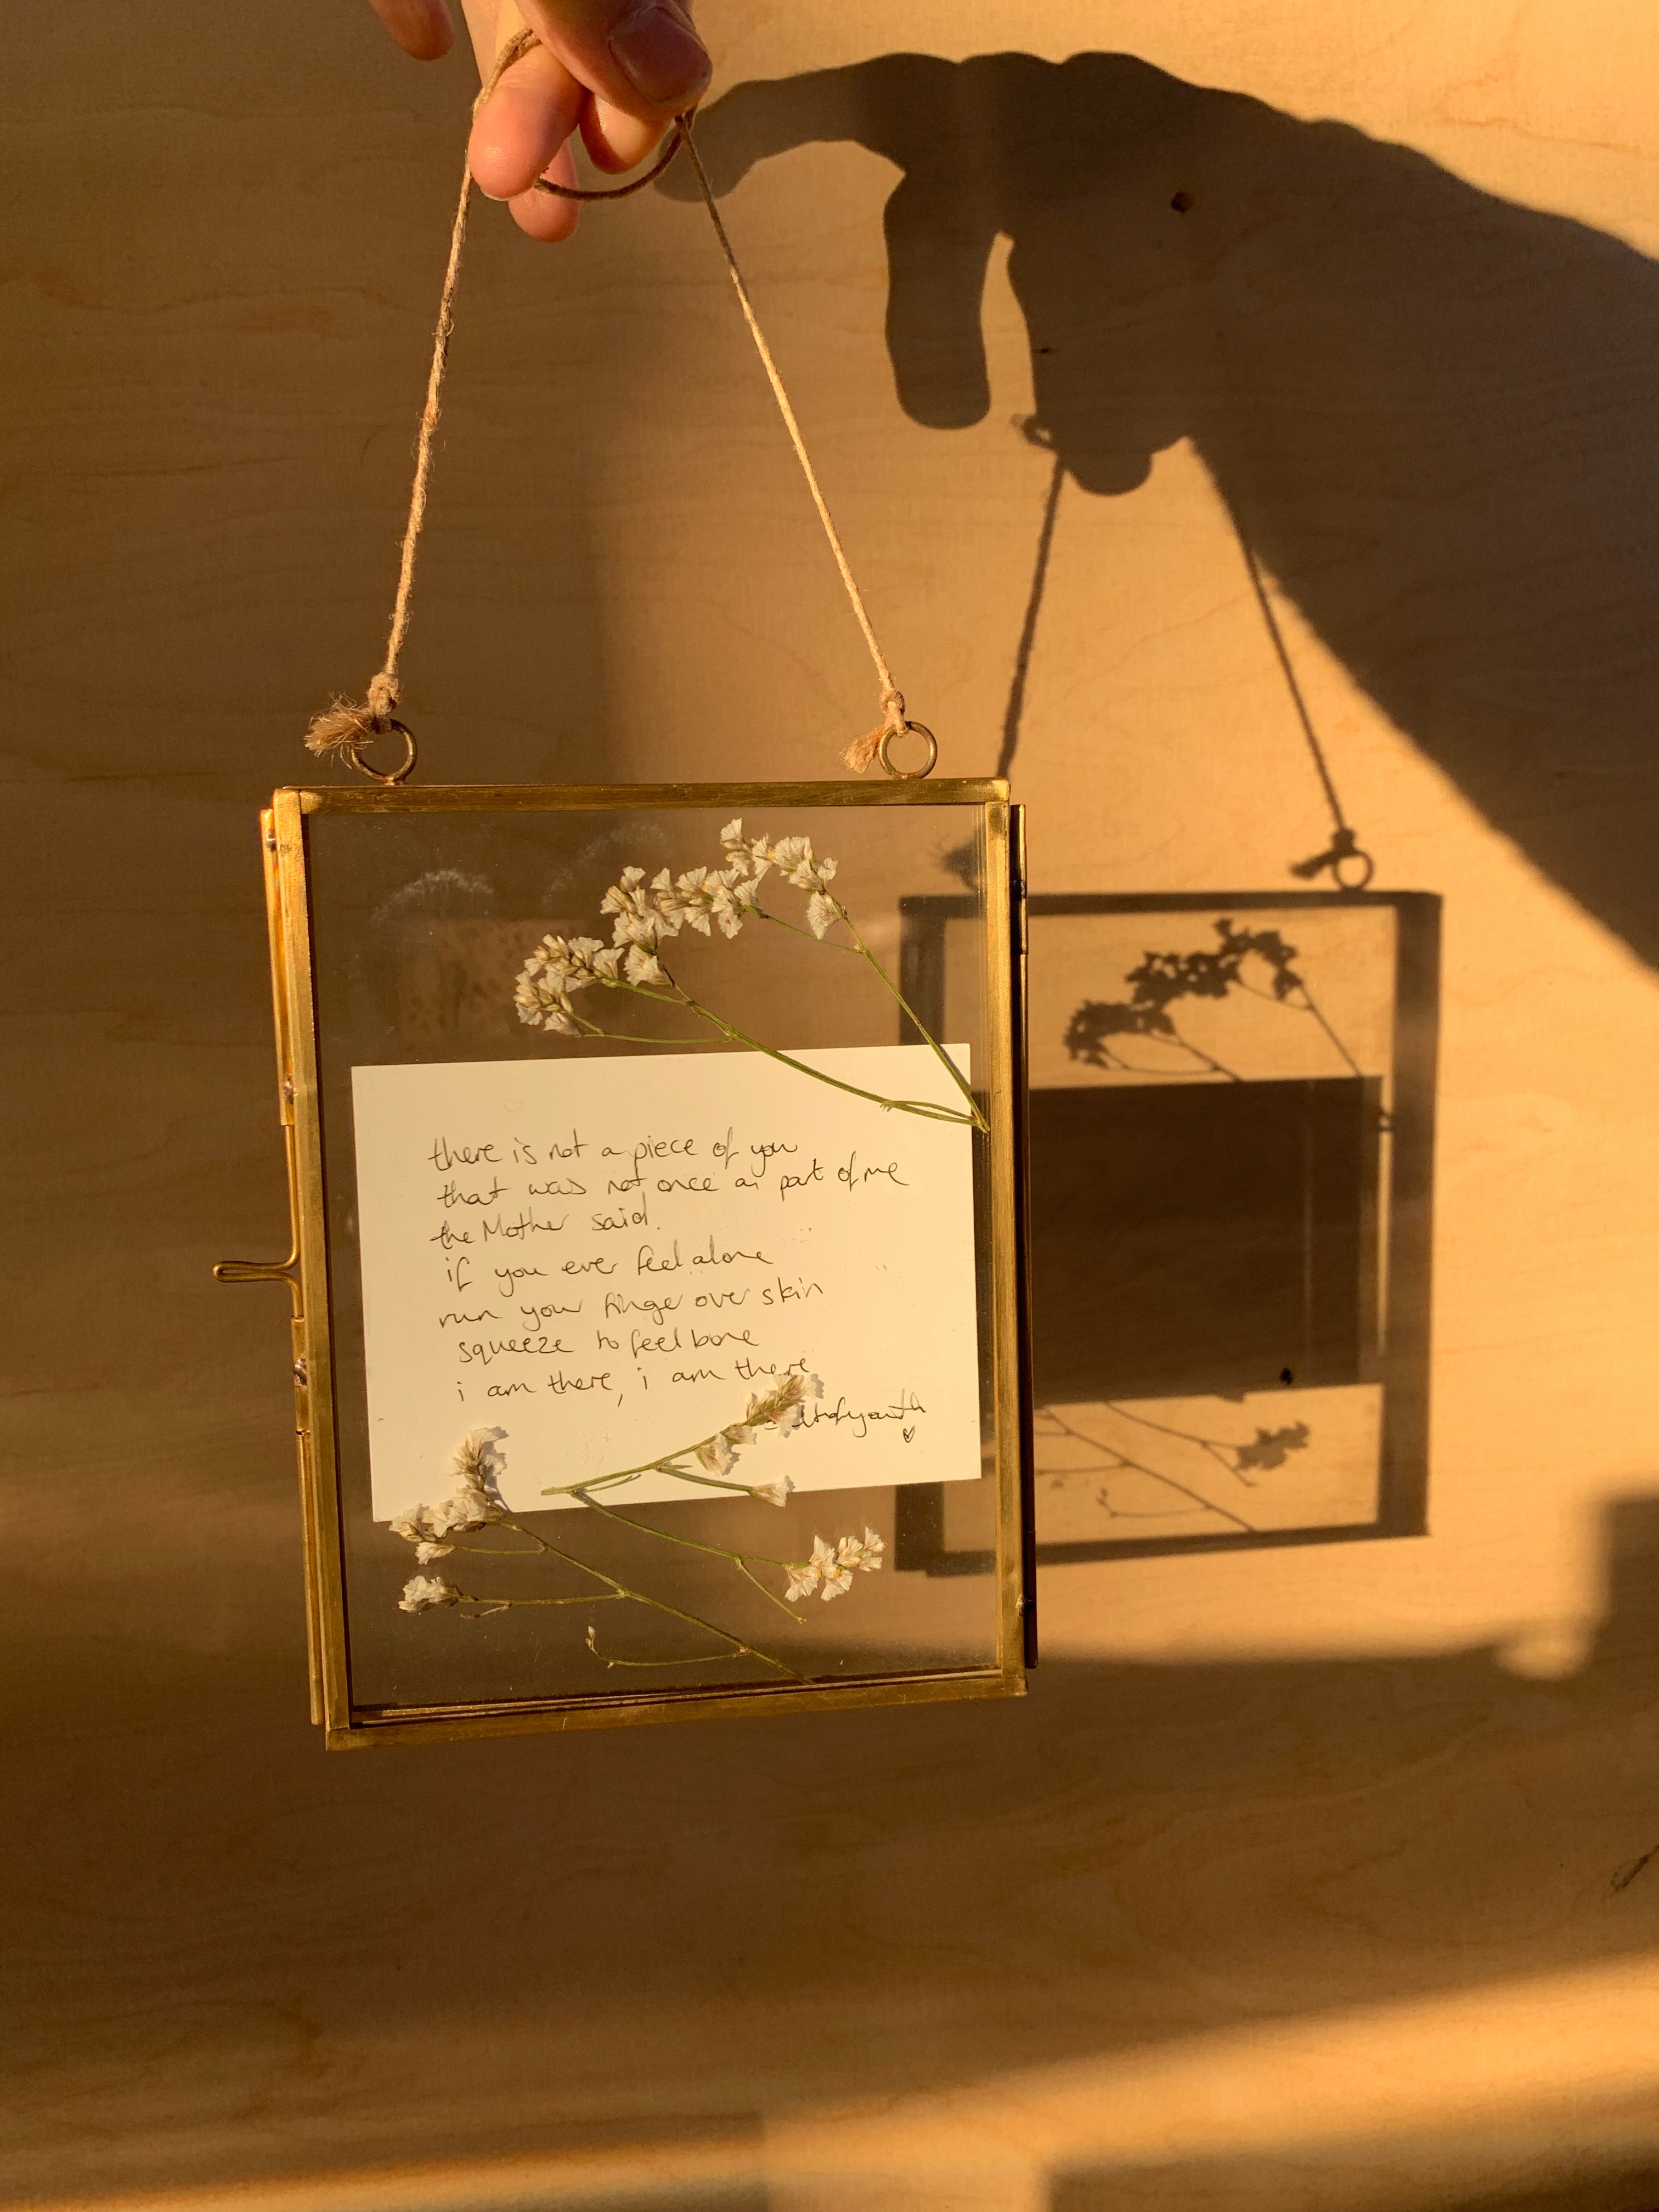 there is not a piece of you
that was not once a part of me
the Mother said.
if you ever feel alone
run your finge over skin
squeeze to feel bone
i am there, i am there